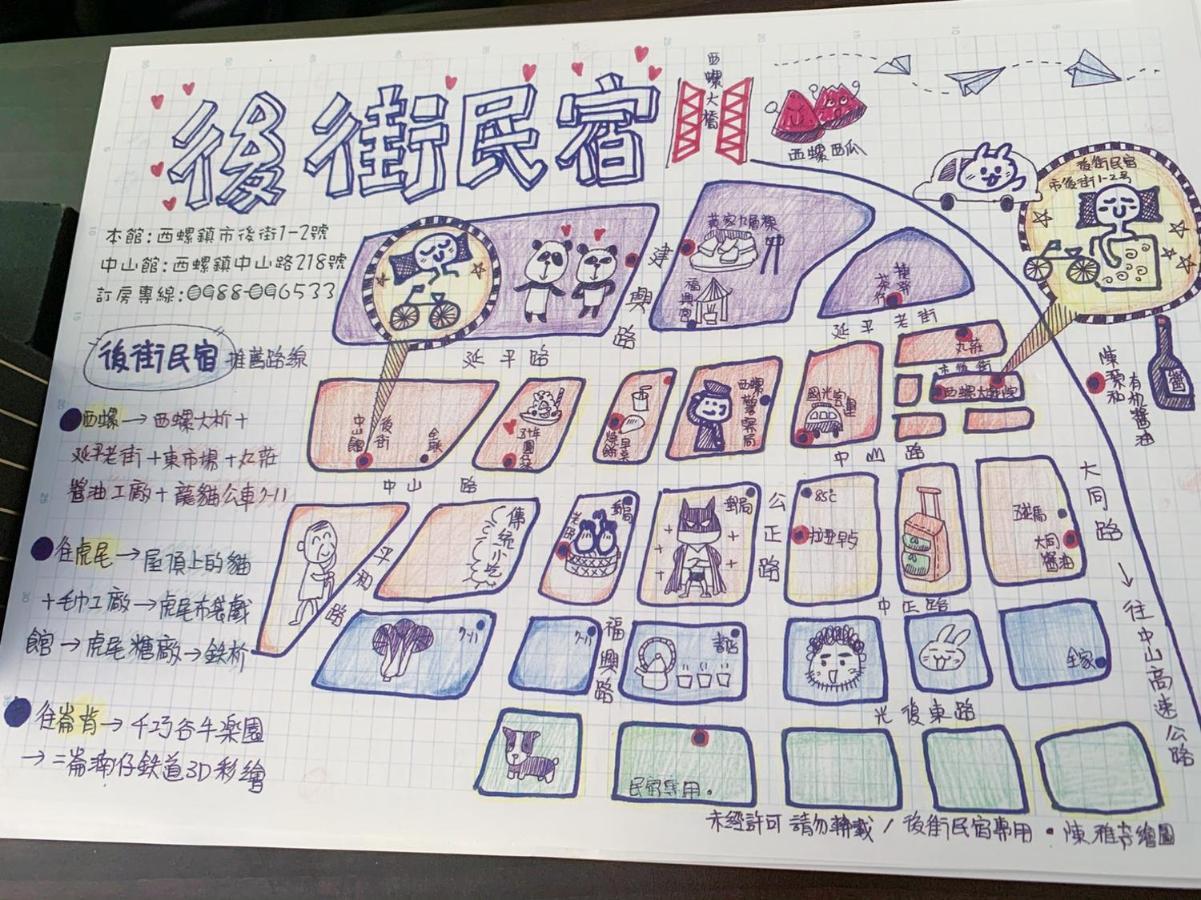 後街民宿
西螺大橋
西螺西瓜
後街民宿
市後街1-2号
本館:西螺鎮市後街1-2號
中山館:西螺鎮中山路218號
訂房專線:0988-096533
後街民宿 推薦路線
西螺→西螺大桥+
延平老街+東市場+丸莊
醬油工廠+龍貓公車7-11
往虎尾→屋頂上的貓
+毛巾工廠→虎尾布袋戲
館→虎尾糖廠→鉄桥
往崙背→千巧谷牛樂園
→二崙湳仔鉄道3D彩繪
建興路
福興宮
延平老街
延平路
丸莊
陳源和
有机醬油
醬
中山館
後街
全聯
西螺警察局
國光客運
中山路
中山路
大同路
→往中山高速公路
平和路
傳統小吃
郵局
郵局
公正路
85℃
大同醬油
中正路
7-11
7-11
福興路
書店
全家
光復東路
民宿專用。
未經許可請勿轉載/後街民宿專用・陳雅卉繪圖